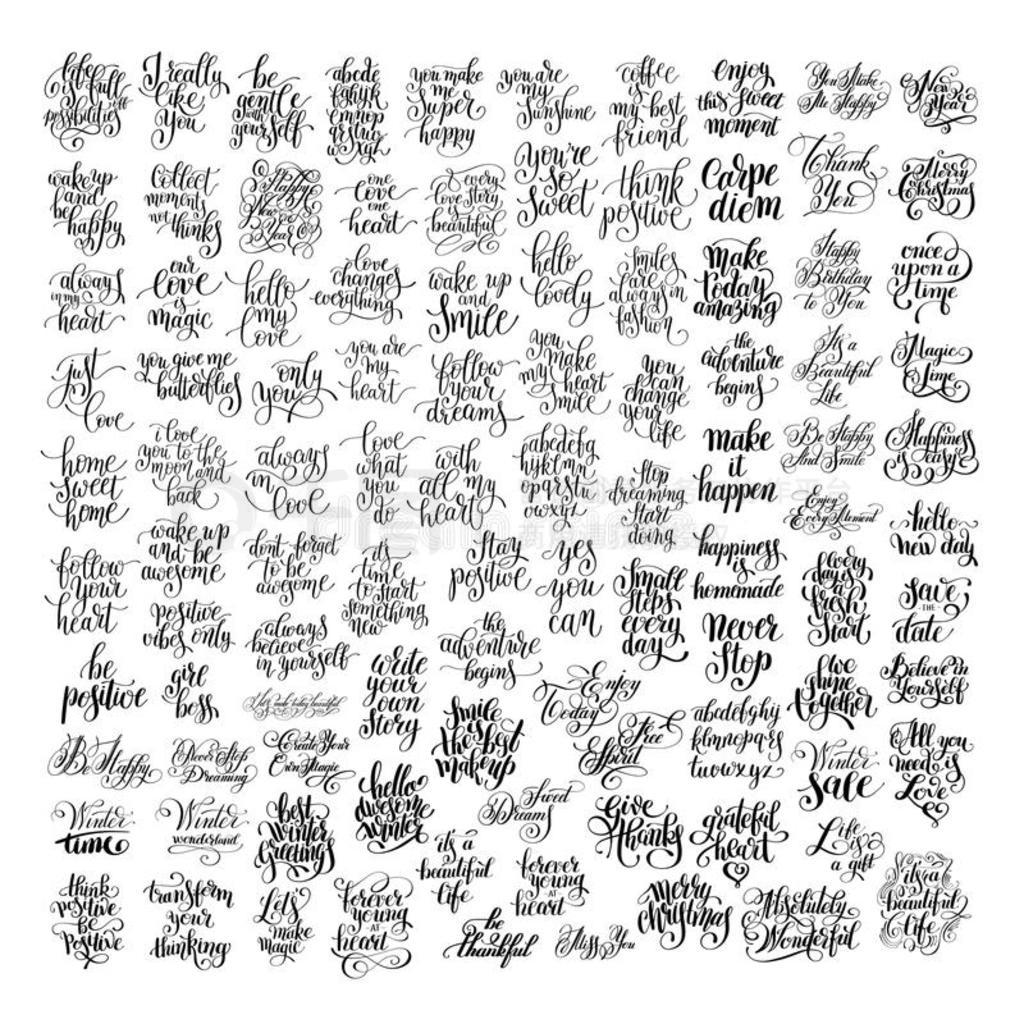 life is full
of
possibilities
I really
like
you
be
gentle
with
yourself
abcde
fghijk
lmnop
qrstu
vwxyz
you make
me
super
happy
you are
my
Sunshine
coffee
is
my best
friend
enjoy
this sweet
moment
You Make
Me Happy
New
Year
wake up
and
be
happy
collect
moments
not
things
Happy
New
Year
one
love
one
heart
every
love story
is
beautiful
you're
so
sweet
think
positive
Carpe
diem
Thank
You
Merry
Christmas
always
in my
heart
our
love
is
magic
hello
my
love
love
changes
everything
wake up
and
Smile
hello
lovely
Smiles
are
always in
fashion
make
today
amazing
Happy
Birthday
to You
once
upon a
time
just
love
you give me
butterflies
only
you
you are
my
heart
follow
your
dreams
you
make
my heart
smile
you
can
change
your
life
the
adventure
begins
It's a
Beautiful
Life
Magic
Time
home
sweet
home
i love
you to the
moon and
back
always
in
love
love
what
you
do
with
all my
heart
abcdefg
hijklmn
opqrstu
vwxyz
Stop
dreaming
Start
doing
make
it
happen
Be Happy
And Smile
Happiness
is easy
follow
your
heart
wake up
and be
awesome
don't forget
to be
awesome
it's
time
to start
something
new
Stay
positive
yes
you
can
Small
steps
every
day
happiness
is
homemade
Enjoy
Every Moment
hello
new day
positive
vibes only
always
believe
in yourself
the
adventure
begins
never
stop
every
day is
a
fresh
start
save
THE
date
be
positive
girl
boss
Let's make today beautiful
write
your
own
story
Smile
is
the best
makeup
Enjoy
Today
Free
Spirit
abcdefghij
klmnopqrs
tuvwxyz
we
shine
together
Believe in
Yourself
Be Happy
Never Stop
Dreaming
Create Your
Own Magic
hello
awesome
winter
Sweet
Dreams
Winter
sale
All you
need is
Love
Winter
time
Winter
wonderland
best
winter
Greetings
it's a
beautiful
life
forever
young
AT
heart
Give
thanks
grateful
heart
Life
is
a gift
think
positive
be
positive
transform
your
thinking
Let's
make
magic
forever
young
AT
heart
be
thankful
Miss You
Merry
christmas
Absolutely
Wonderful
it's a
beautiful
life